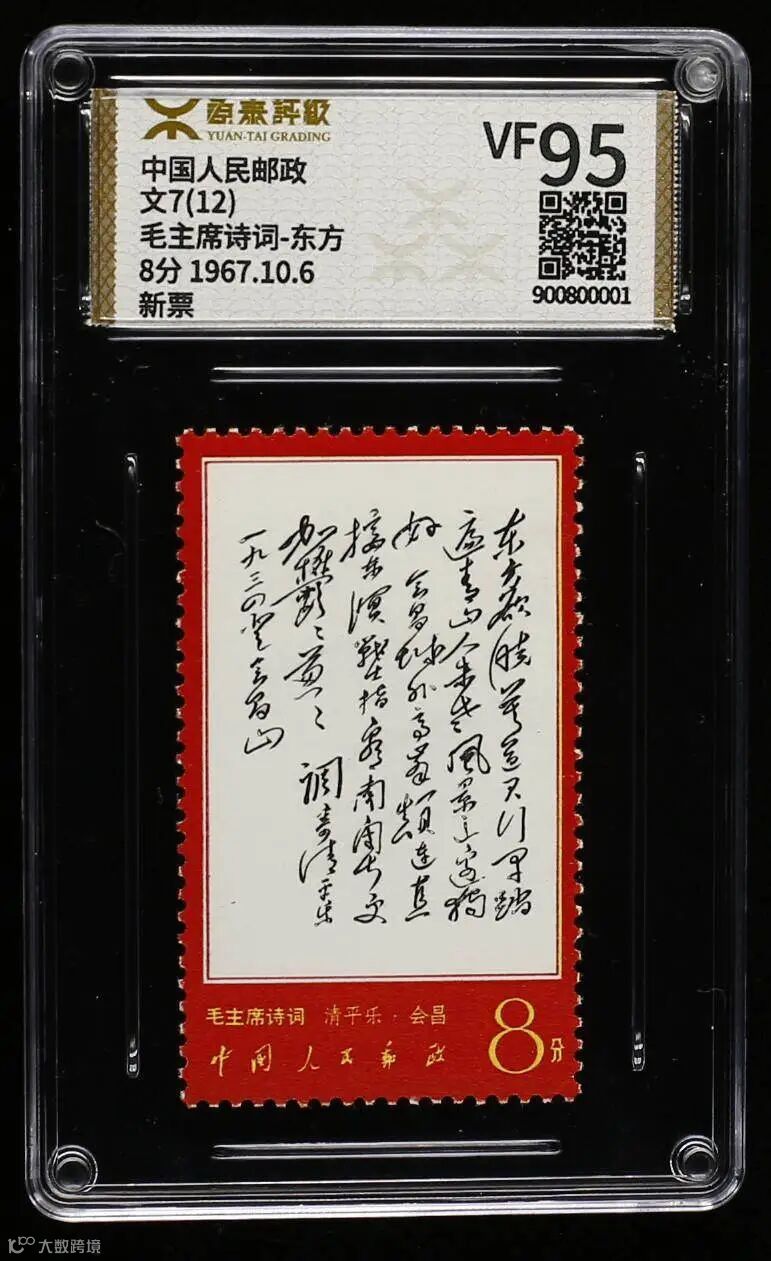 原泰評級
YUAN-TAI GRADING
中国人民邮政
文7(12)
毛主席诗词-东方
8分 1967.10.6
新票
VF95
900800001
东方欲晓莫道君行早踏
遍青山人未老风景这边独
好 会昌城外高峰颠连直
接东溟战士指看南粤更
加郁〻葱〻 调寄清平乐
一九三四登会昌山
毛主席诗词 清平乐·会昌
中国人民邮政
8分
大数跨境